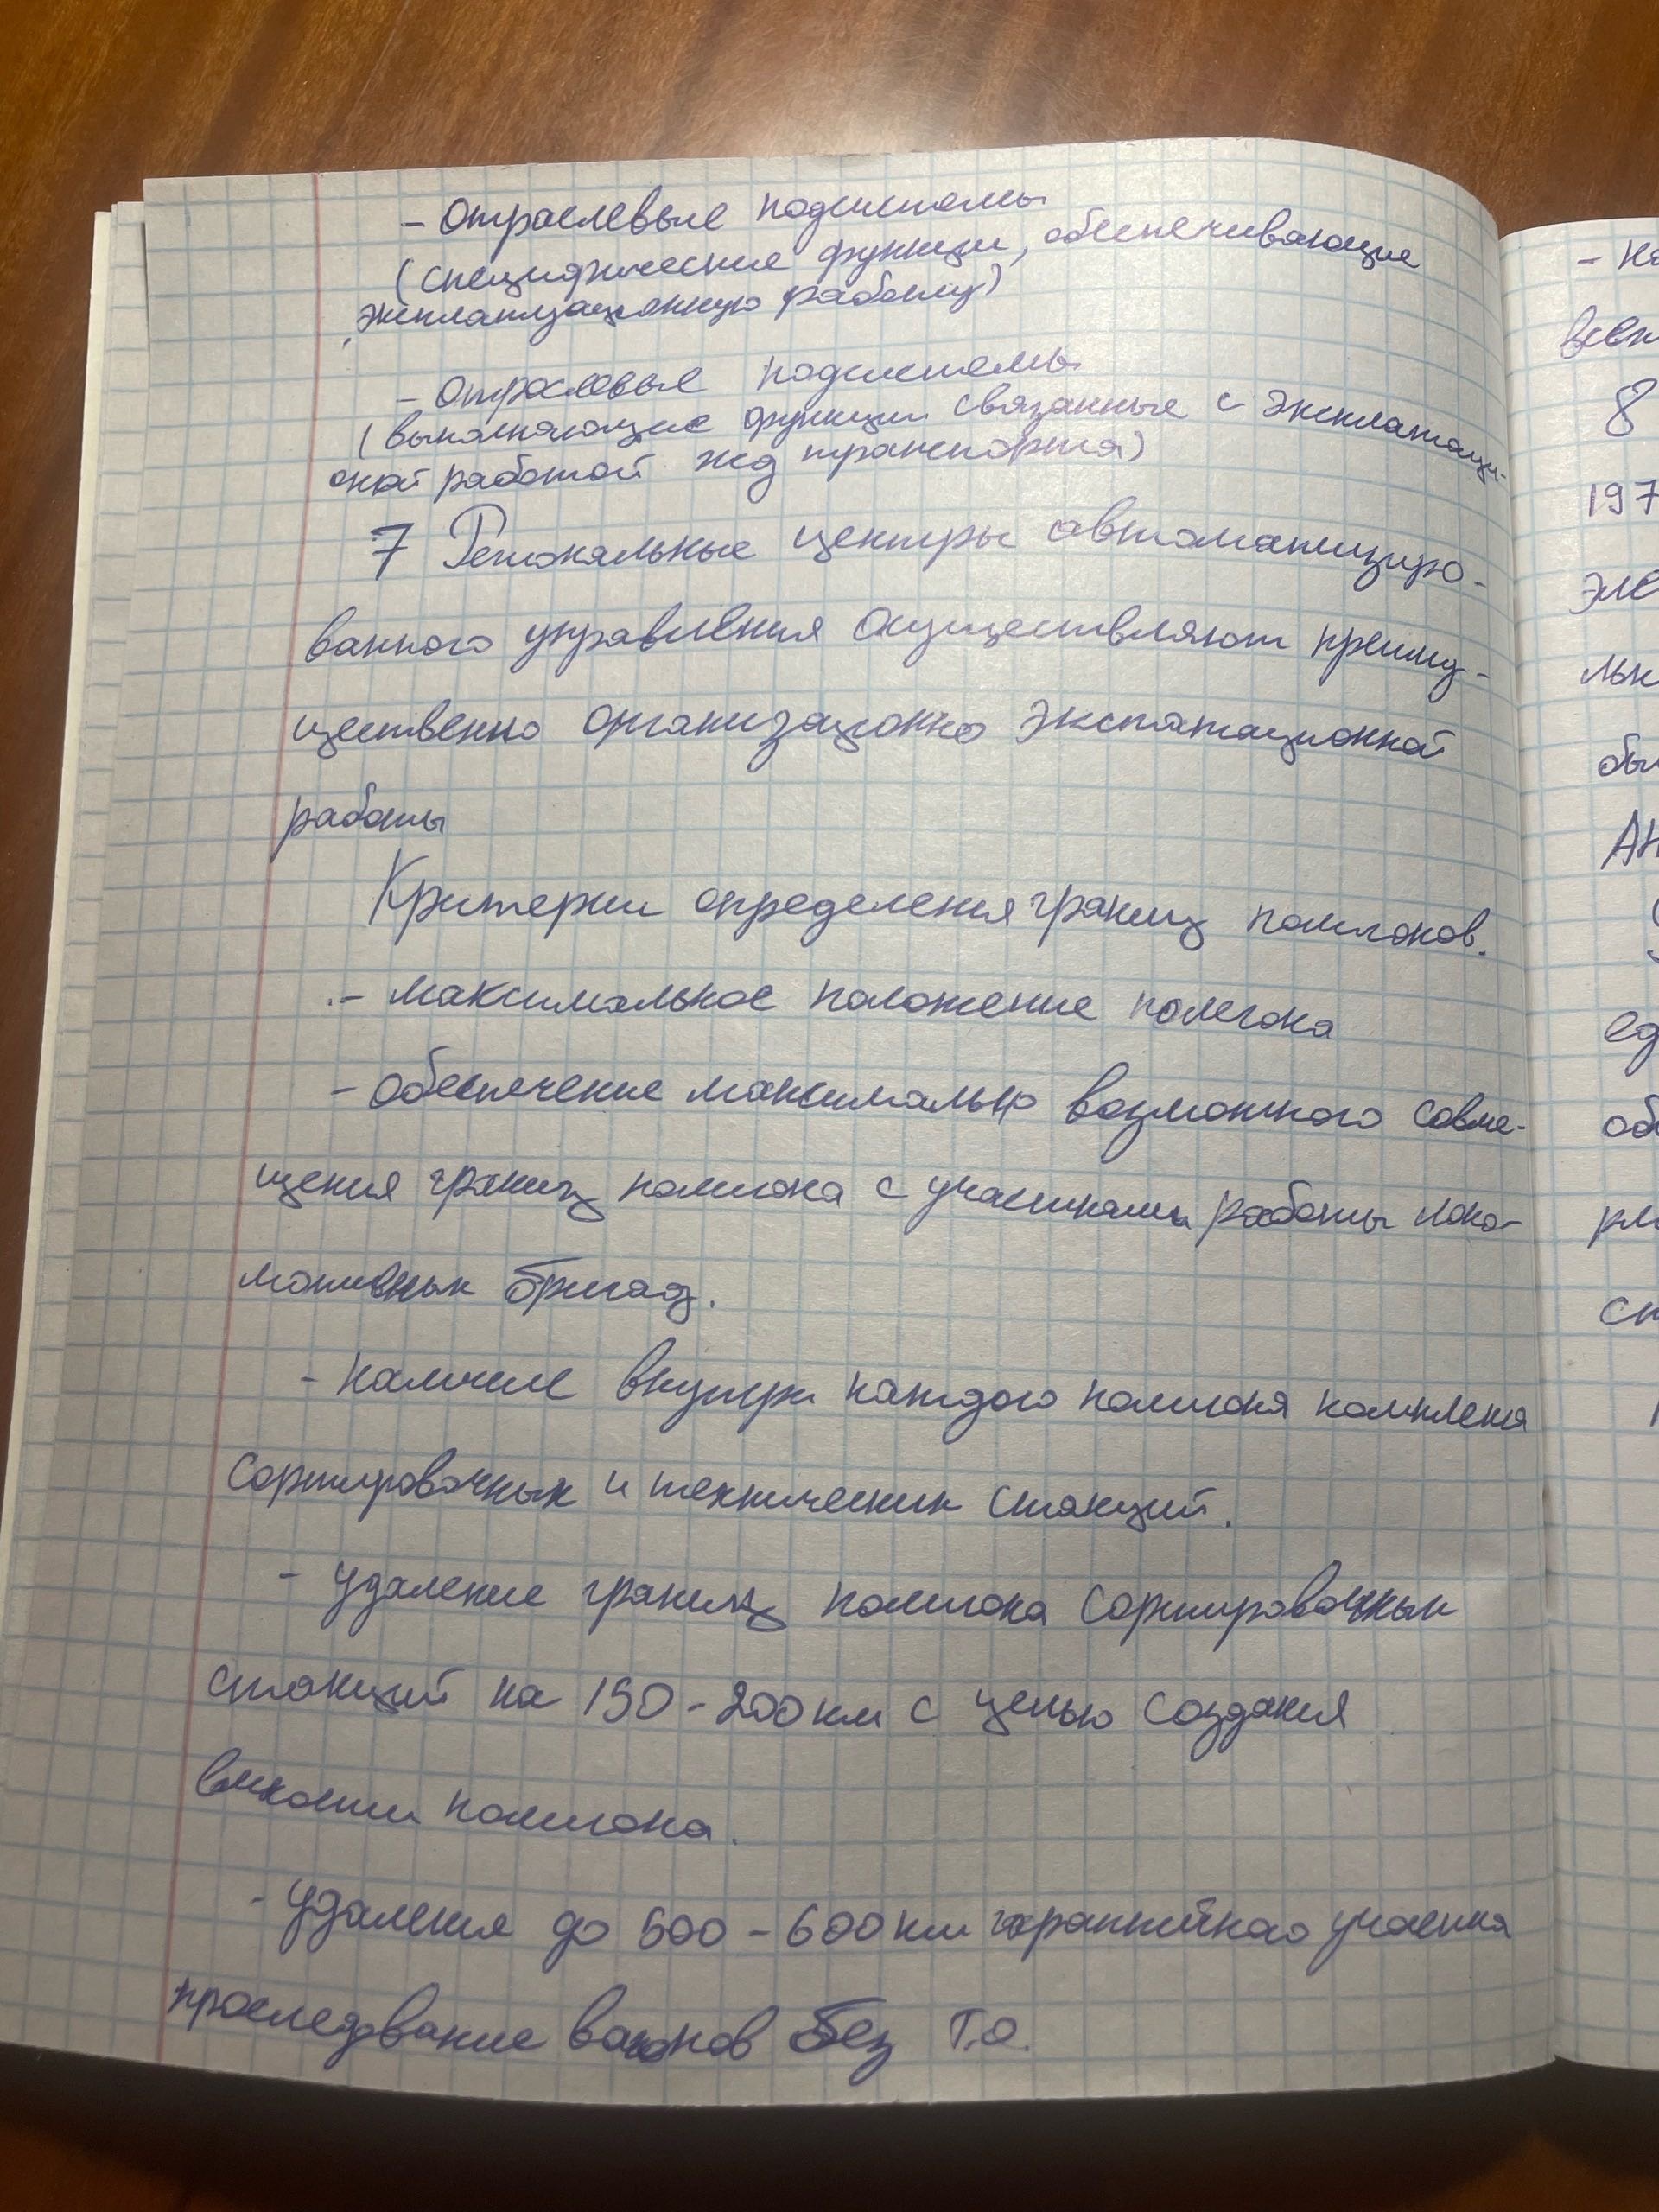 - Отраслевые подсистемы
(специфические функции, обеспечивающие
эксплатационную работу)
- Отраслевые подсистемы
(выполняющие функции связанные с эксплатаци-
оной работой жд транспорта)
7 Региональные центры автоматизиро-
ванного управления осуществляют преиму-
щественно организационно экспатационной
работы
Критерии определения границ полигонов.
- максимальное положение полегона
- обеспечение максимально возможного совме-
щения границ полигона с участками работы локо-
мотивных бригад.
- наличие внутри каждого полигона комплекса
сортировочных и технических станций.
- удаление границ полигона сортировочных
станций на 150-200 км с целью создания
полигона.
- удаления до 500-600 км гарантийного участка
проследование вагонов без Т.О.
- на
8
197
эле
льн
бы
АН
ед
об